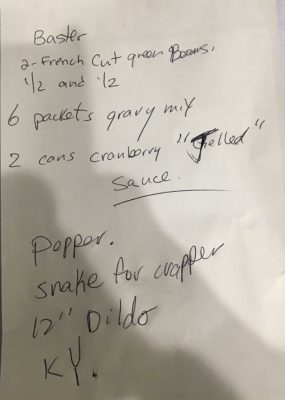 Baster
2-French Cut green Beans.
1/2 and 1/2
6 packets gravy mix
2 cans cranberry "Jelled"
Sauce.
Pepper.
snake for crapper
12" Dildo
KY.